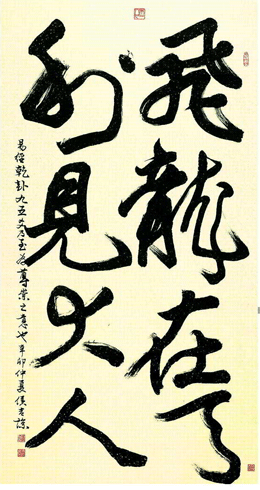 飛龍在天
利見大人
易经乾卦九五爻为至尊崇之意也辛卯仲夏侯